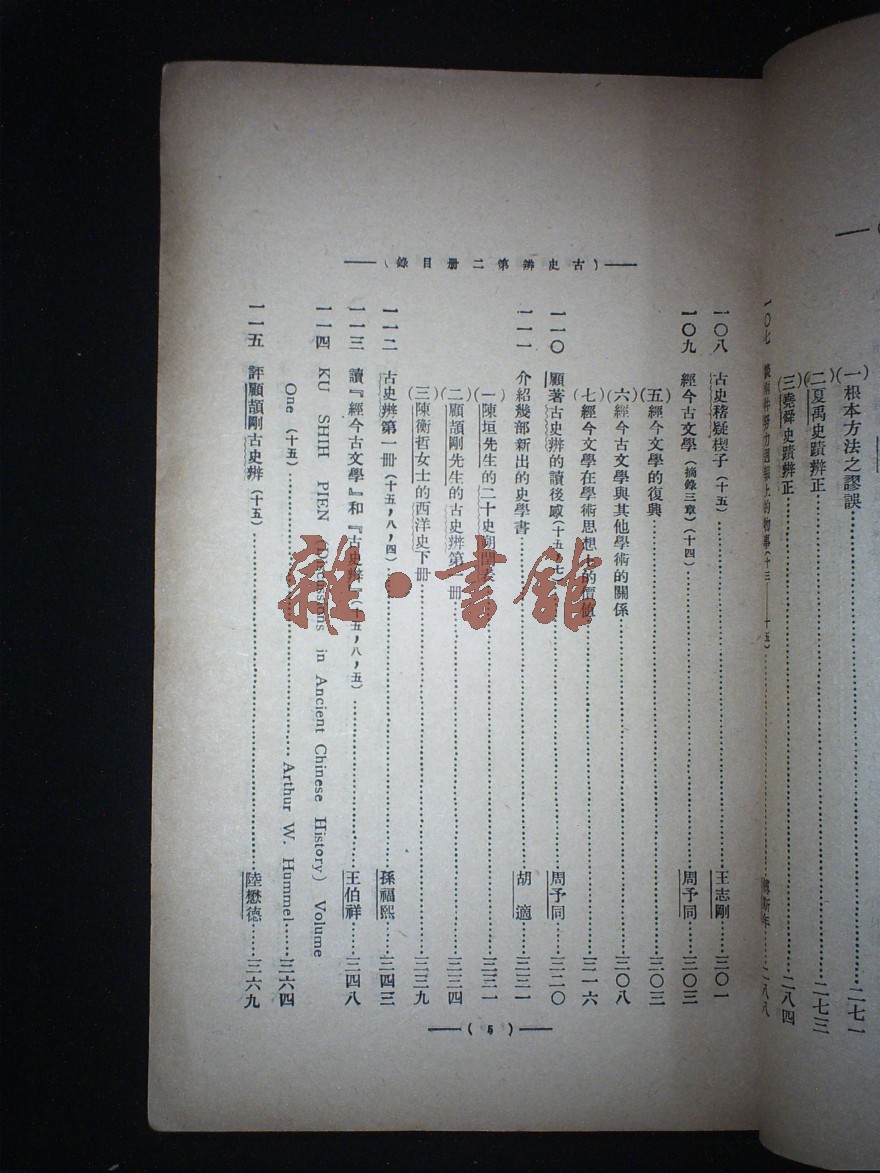 (一)根本方法之謬誤……二七一
(二)夏禹史蹟辨正……二七三
(三)堯舜史蹟辨正……二八四
一〇七 談兩件努力週報上的物事(十三——十五)……傅斯年……二八八
(古史辨第二册目錄)
一〇八 古史稽疑楔子(十五)……王志剛……三〇一
一〇九 經今古文學(摘錄三章)(十四)……周予同……三〇三
(五)經今文學的復興……三〇三
(六)經今古文學與其他學術的關係……三〇八
(七)經今文學在學術思想上的價値……三一六
一一〇 顧著古史辨的讀後感(十五,七)……周予同……三二〇
一一一 介紹幾部新出的史學書……胡適……三三一
(一)陳垣先生的二十史朔閏表……三三一
(二)顧頡剛先生的古史辨第一册……三三四
(三)陳衡哲女士的西洋史下册……三三九
一一二 古史辨第一冊(十五,八,四)……孫福熙……三四三
一一三 讀『經今古文學』和『古史辨』(十五,八,五)……王伯祥……三四八
一一四 KU SHIH PIEN (Discussions in Ancient Chinese History) Volume
One (十五)……Arthur W. Hummel……三六四
一一五 評顧頡剛古史辨(十五)……陸懋德……三六九
(5)
雜·書館